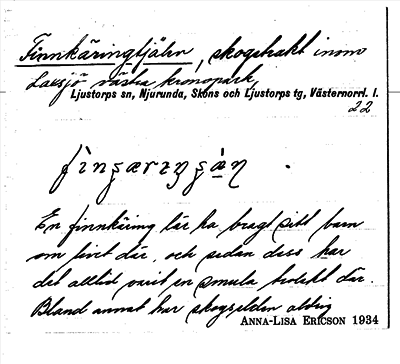 Finnkäringtjälen, skogstrakt inom
Laxsjö västra kronopark,
Ljustorps sn, Njurunda, Sköns och Ljustorps tg, Västernorrl. l.
22
En finnkäring lär ha bragt sitt barn
om livet där, och sedan dess har
det alltid varit en smula hotekt där.
Bland annat har skogselden aldrig
ANNA-LISA ERICSON 1934